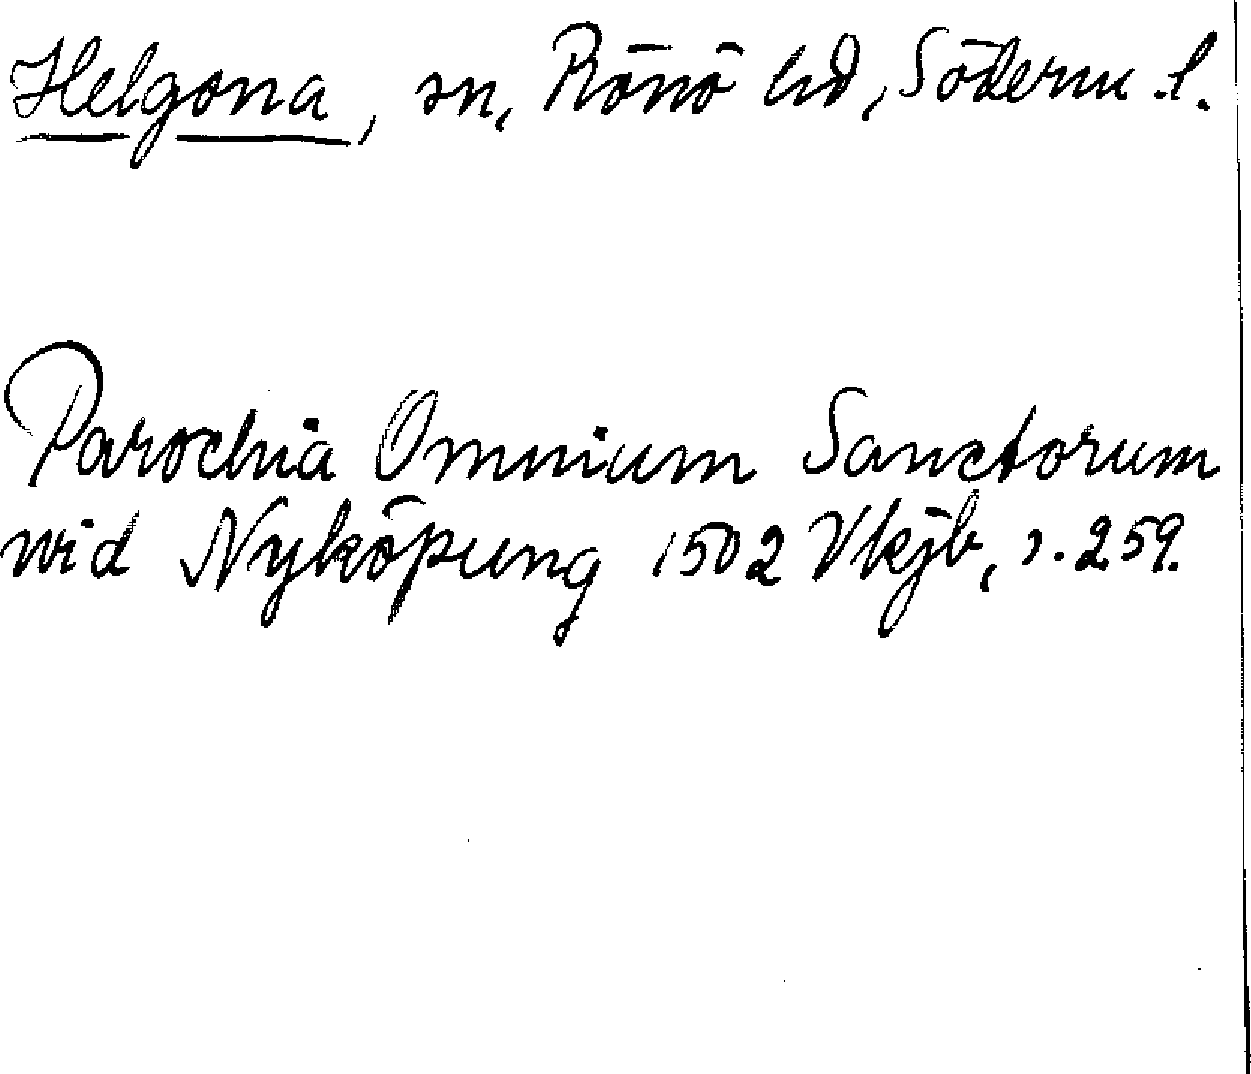 Helgona, sn, Rönö hd, Söderm. l.
Parochia Omnium Sanctorum
wid Nyköpung 1502 Vkjb, s. 259.